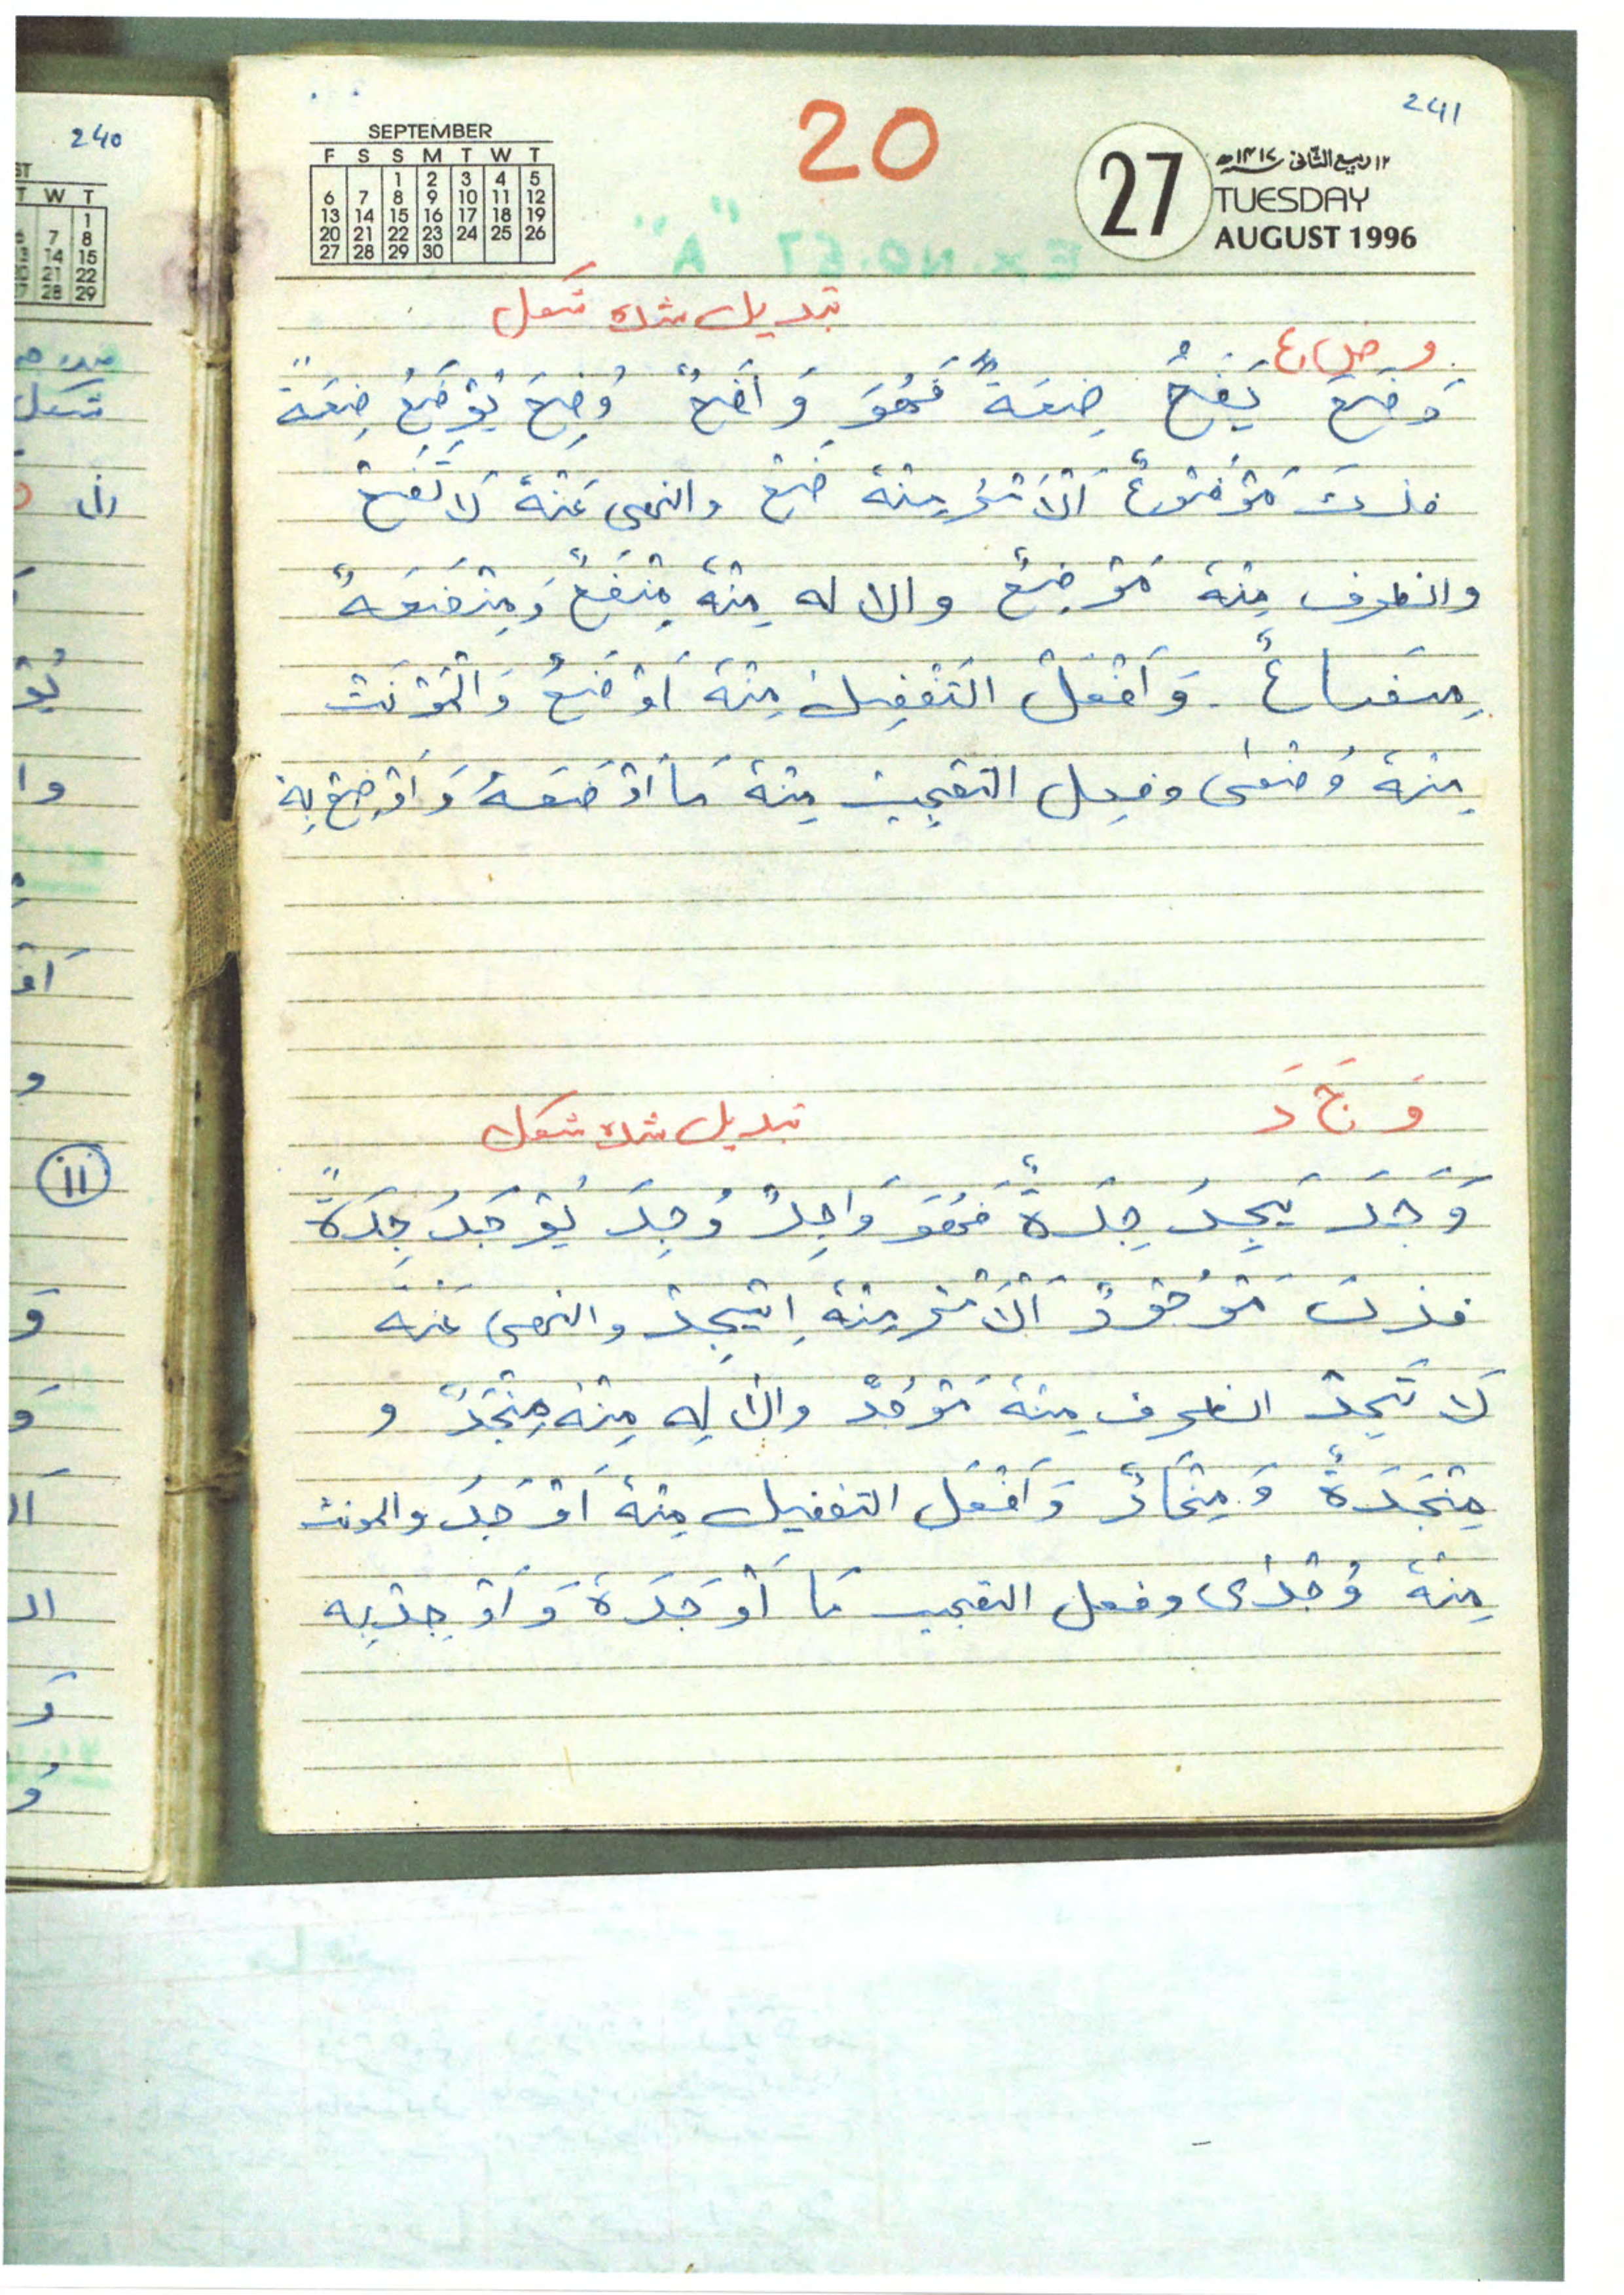 240
241
20
SEPTEMBER
F S S M T W T
1 2 3 4 5
6 7 8 9 10 11 12
13 14 15 16 17 18 19
20 21 22 23 24 25 26
27 28 29 30
27
۱۲ ربیع الثّانی ۱۴۱۷ھ
TUESDAY
AUGUST 1996
تبدیل شدہ شکل
و ض ع
وَضَعَ یَضَعُ ضِعَةً فَهُوَ وَاضِعٌ وُضِعَ یُوْضَعُ ضِعَةً
فذاک مَوْضُوْعٌ اَلْاَمْرُ مِنْهُ ضَعْ والنهی عَنْهُ لَا تَضَعْ
والظرف مِنْهُ مَوْضِعٌ والالہ مِنْهُ مِيْضَعٌ وَمِيْضَعَةٌ
مِيْضَاعٌ وَاَفْعَلُ التَفْضِيل مِنْهُ اَوْضَعُ وَالْمُؤنث
مِنْهُ وُضْعٰی وفعل التعجب مِنْهُ مَا اَوْضَعَهُ وَاَوْضِعْ بِهٖ
وَ جَ دَ
تبدیل شدہ شکل
وَجَدَ یَجِدُ جِدَةً فَهُوَ وَاجِدٌ وُجِدَ یُوْجَدُ جِدَةً
فذاک مَوْجُوْدٌ اَلْاَمْرُ مِنْهُ اِیْجِدْ والنهی عَنْهُ
لَا تَجِدْ الظرف مِنْهُ مَوْجِدٌ والالہ مِنْهُ مِيْجَدٌ و
مِيْجَدَةٌ وَ مِيْجَادٌ وَاَفْعَل التفضیل مِنْهُ اَوْجَدُ والمونث
مِنْهُ وُجْدٰی وفعل التعجب مَا اَوْجَدَهُ وَ اَوْجِدْ بِهِ